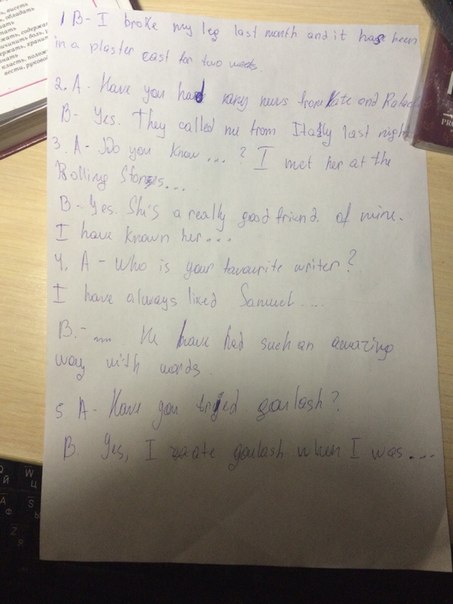 1 B - I broke my leg last month and it has been
in a plaster cast for two
2. A - Have you had any news from Kate and
B - Yes. They called me from Italy last night
3. A - Do you know ... ? I met her at the
Rolling Stones...
B - Yes. She's a really good friend of mine.
I have known her...
4. A - Who is your favourite writer?
I have always liked Samuel ....
B. - ... He have had such an amazing
way with words.
5. A - Have you tryed goulash?
B. Yes, I goulash when I was....